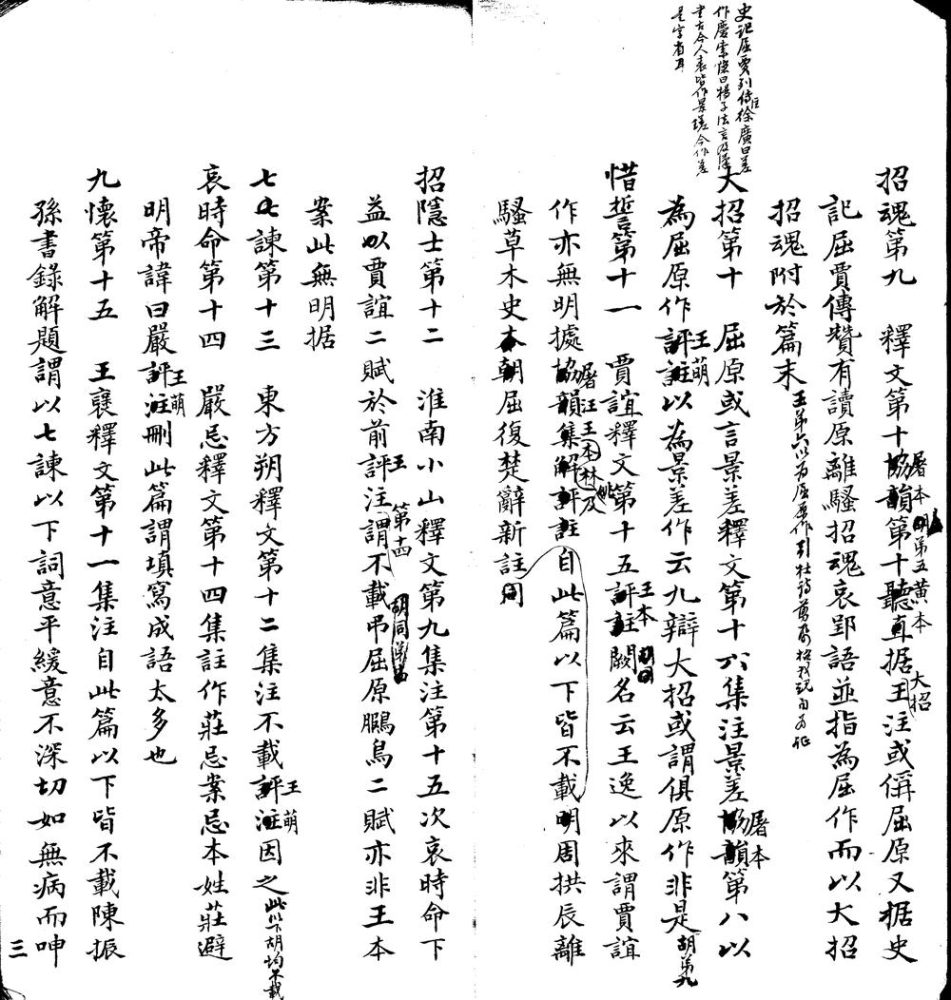 史記屈賈列傳注徐廣曰差
作慶索隱曰楊子法言及漢
書古今人表皆作景瑳今作差
是字省耳
招魂第九　釋文第十協韻屠本第十明第五黃本聽直据王注大招或偁屈原又据史
記屈賈傳贊有讀原離騷招魂哀郢語並指為屈作而以大招
招魂附於篇末
大招第十　屈原或言景差釋文第十六集注景差協韻屠本第八以
為屈原作評註王萌以為景差作云九辯大招或謂俱原作非是胡第九
惜誓第十一　賈誼釋文第十五評註王本闕名云王逸以來謂賈誼
作亦無明據協韻集解評註屠汪王本林及此自此篇以下皆不載明周拱辰離
騷草木史本朝屈復楚辭新註同
招隱士第十二　淮南小山釋文第九集注第十五次哀時命下
益以賈誼二賦於前評注王謂第十四不載弔屈原鵩鳥二賦亦非王本
案此無明据
七諫第十三　東方朔釋文第十二集注不載評注王萌因之此以下胡均不載
哀時命第十四　嚴忌釋文第十四集註作莊忌案忌本姓莊避
明帝諱曰嚴評注王萌刪此篇謂填寫成語太多也
九懷第十五　王襃釋文第十一集注自此篇以下皆不載陳振
孫書錄解題謂以七諫以下詞意平緩意不深切如無病而呻
三